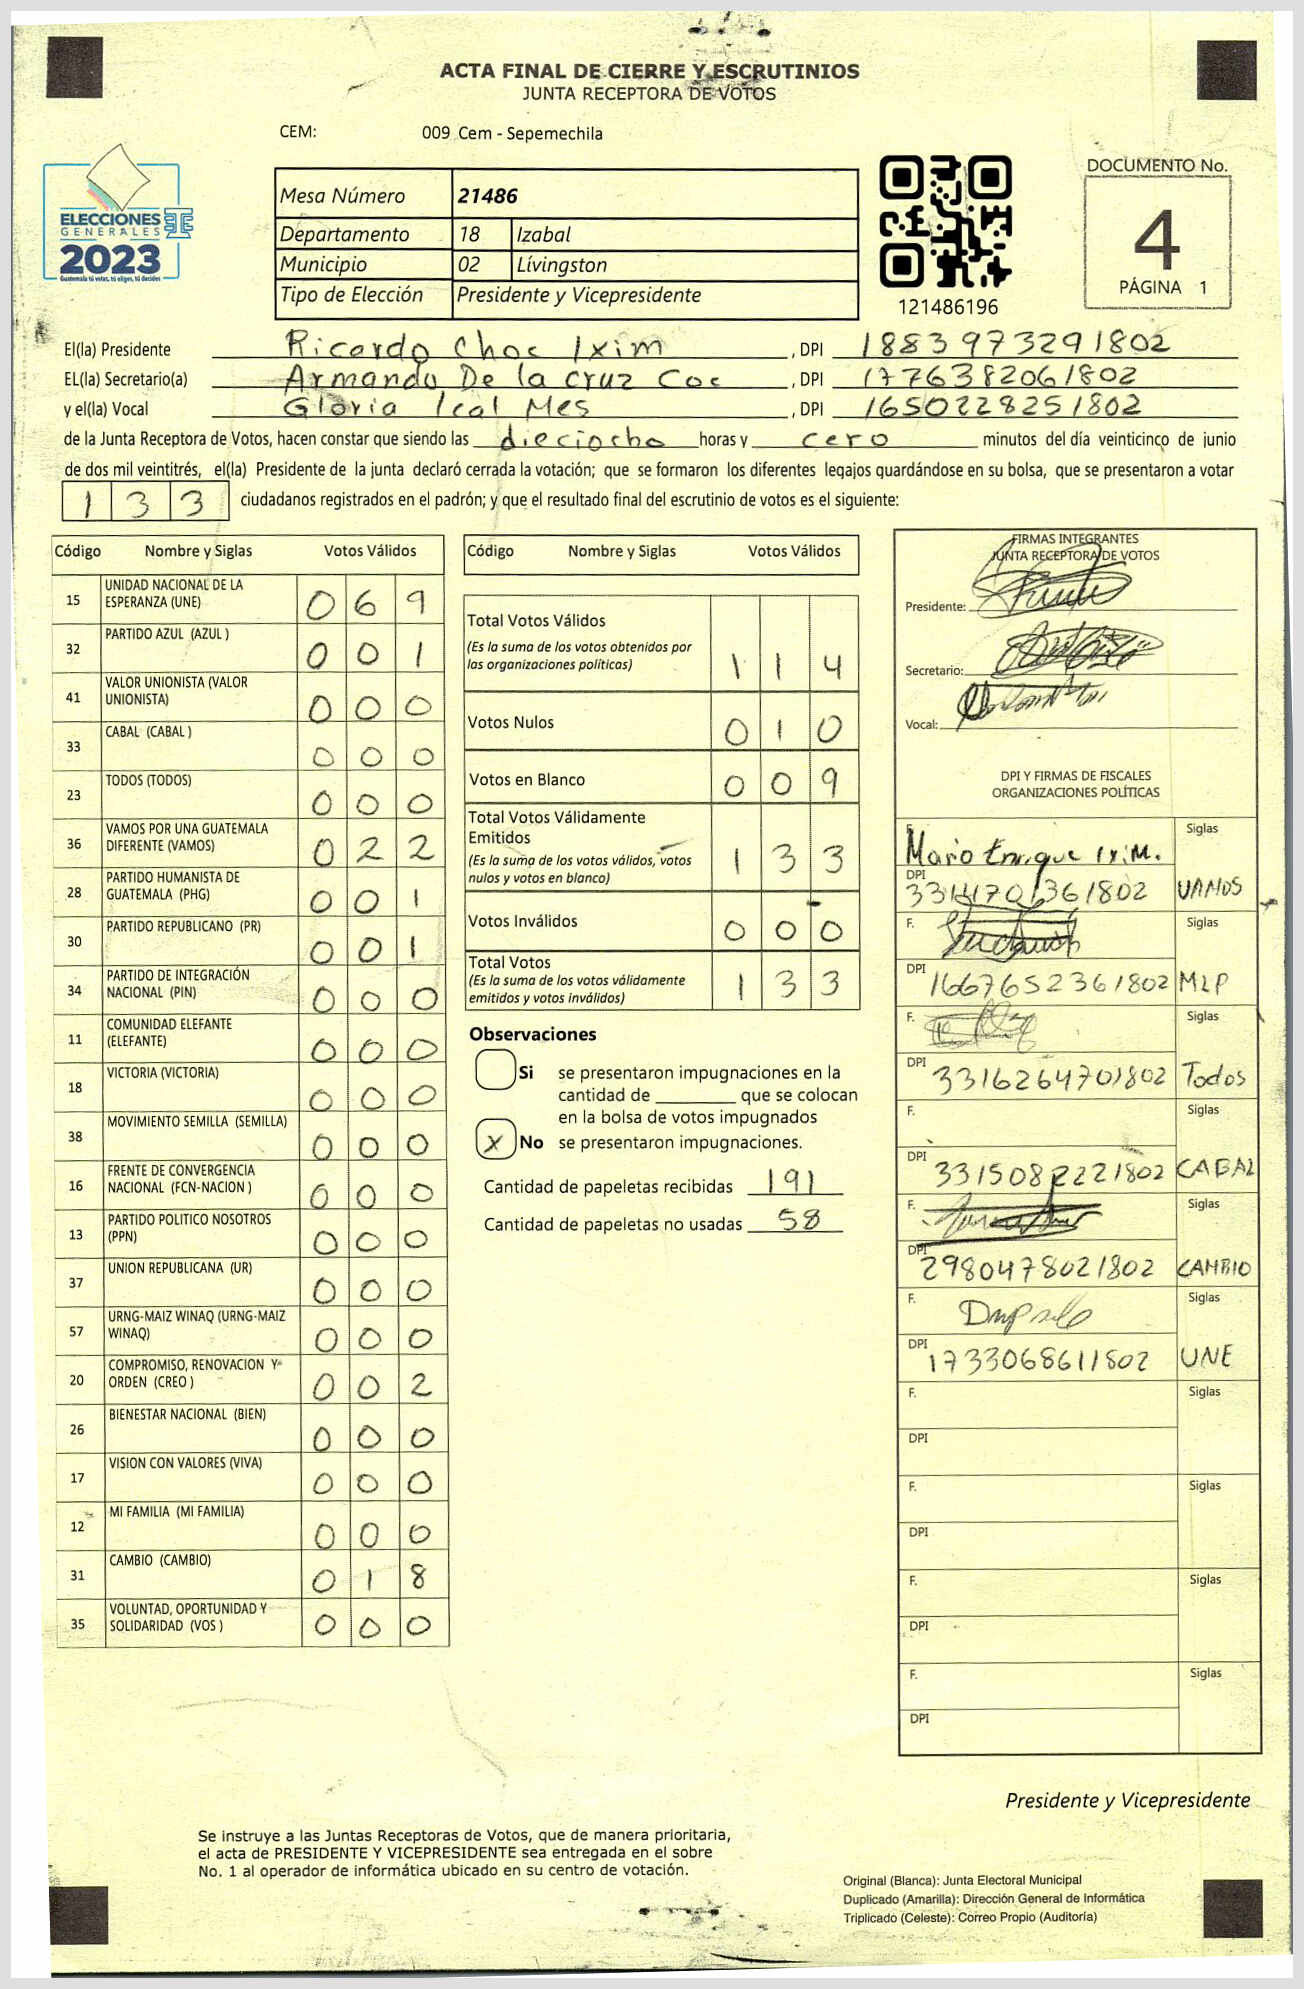 ACTA FINAL DE CIERRE Y ESCRUTINIOS
JUNTA RECEPTORA DE VOTOS
CEM: 009 Cem - Sepemechila
ELECCIONES
GENERALES
2023
Guatemala tú votas, tú eliges, tú decides
Mesa Número 21486
Departamento 18 Izabal
Municipio 02 Lívingston
Tipo de Elección Presidente y Vicepresidente
121486196
DOCUMENTO No.
4
PÁGINA 1
El(la) Presidente Ricardo Choc Ixim , DPI 1883973291802
EL(la) Secretario(a) Armando De la Cruz Coc , DPI 1776382061802
y el(la) Vocal Gloria Ical Mes , DPI 1650228251802
de la Junta Receptora de Votos, hacen constar que siendo las dieciocho horas y cero minutos del día veinticinco de junio
de dos mil veintitrés, el(la) Presidente de la junta declaró cerrada la votación; que se formaron los diferentes legajos guardándose en su bolsa, que se presentaron a votar
133 ciudadanos registrados en el padrón; y que el resultado final del escrutinio de votos es el siguiente:
Código Nombre y Siglas Votos Válidos
15 UNIDAD NACIONAL DE LA ESPERANZA (UNE) 069
32 PARTIDO AZUL (AZUL ) 001
41 VALOR UNIONISTA (VALOR UNIONISTA) 000
33 CABAL (CABAL ) 000
23 TODOS (TODOS) 000
36 VAMOS POR UNA GUATEMALA DIFERENTE (VAMOS) 022
28 PARTIDO HUMANISTA DE GUATEMALA (PHG) 001
30 PARTIDO REPUBLICANO (PR) 001
34 PARTIDO DE INTEGRACIÓN NACIONAL (PIN) 000
11 COMUNIDAD ELEFANTE (ELEFANTE) 000
18 VICTORIA (VICTORIA) 000
38 MOVIMIENTO SEMILLA (SEMILLA) 000
16 FRENTE DE CONVERGENCIA NACIONAL (FCN-NACION ) 000
13 PARTIDO POLITICO NOSOTROS (PPN) 000
37 UNION REPUBLICANA (UR) 000
57 URNG-MAIZ WINAQ (URNG-MAIZ WINAQ) 000
20 COMPROMISO, RENOVACION Y ORDEN (CREO ) 002
26 BIENESTAR NACIONAL (BIEN) 000
17 VISION CON VALORES (VIVA) 000
12 MI FAMILIA (MI FAMILIA) 000
31 CAMBIO (CAMBIO) 018
35 VOLUNTAD, OPORTUNIDAD Y SOLIDARIDAD (VOS ) 000
Código Nombre y Siglas Votos Válidos
Total Votos Válidos
(Es la suma de los votos obtenidos por
las organizaciones políticas) 114
Votos Nulos 010
Votos en Blanco 009
Total Votos Válidamente
Emitidos
(Es la suma de los votos válidos, votos
nulos y votos en blanco) 133
Votos Inválidos 000
Total Votos
(Es la suma de los votos válidamente
emitidos y votos inválidos) 133
Observaciones
Si se presentaron impugnaciones en la
cantidad de ________ que se colocan
en la bolsa de votos impugnados
X No se presentaron impugnaciones.
Cantidad de papeletas recibidas 191
Cantidad de papeletas no usadas 58
FIRMAS INTEGRANTES
JUNTA RECEPTORA DE VOTOS
Presidente:
Secretario:
Vocal:
DPI Y FIRMAS DE FISCALES
ORGANIZACIONES POLÍTICAS
F. Mario Enrique Ixim. Siglas
DPI 3314701361802 VAMOS
F. Siglas
DPI 1667652361802 MLP
F. Siglas
DPI 3316264701802 Todos
F. Siglas
DPI 3315082221802 CABAL
F. Siglas
DPI 2980478021802 CAMBIO
F. Siglas
DPI 1733068611802 UNE
F. Siglas
DPI
F. Siglas
DPI
F. Siglas
DPI
F. Siglas
DPI
Presidente y Vicepresidente
Se instruye a las Juntas Receptoras de Votos, que de manera prioritaria,
el acta de PRESIDENTE Y VICEPRESIDENTE sea entregada en el sobre
No. 1 al operador de informática ubicado en su centro de votación.
Original (Blanca): Junta Electoral Municipal
Duplicado (Amarilla): Dirección General de Informática
Triplicado (Celeste): Correo Propio (Auditoría)